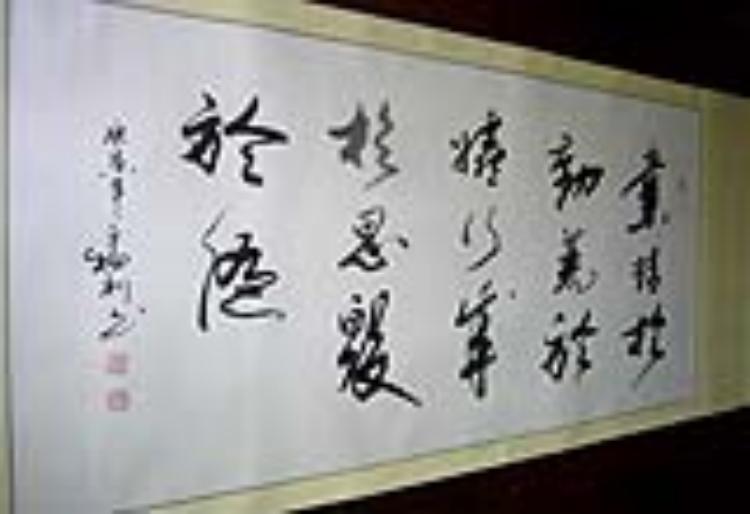 業精於
勤荒於
嬉行成
於思毀
於隨